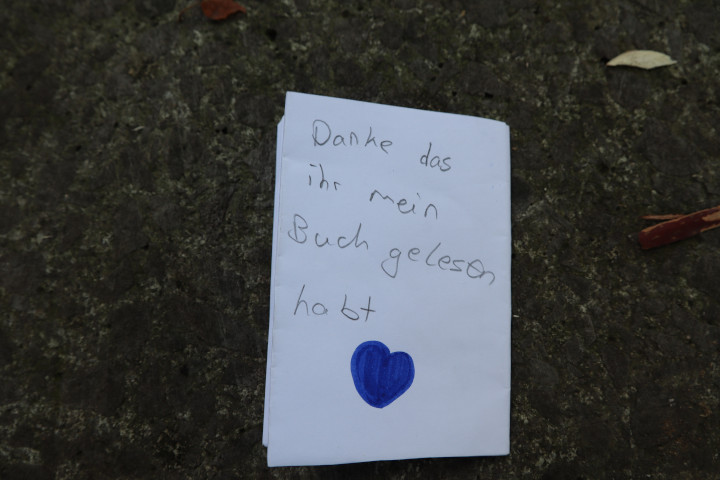 Danke das
ihr mein
Buch gelesen
habt